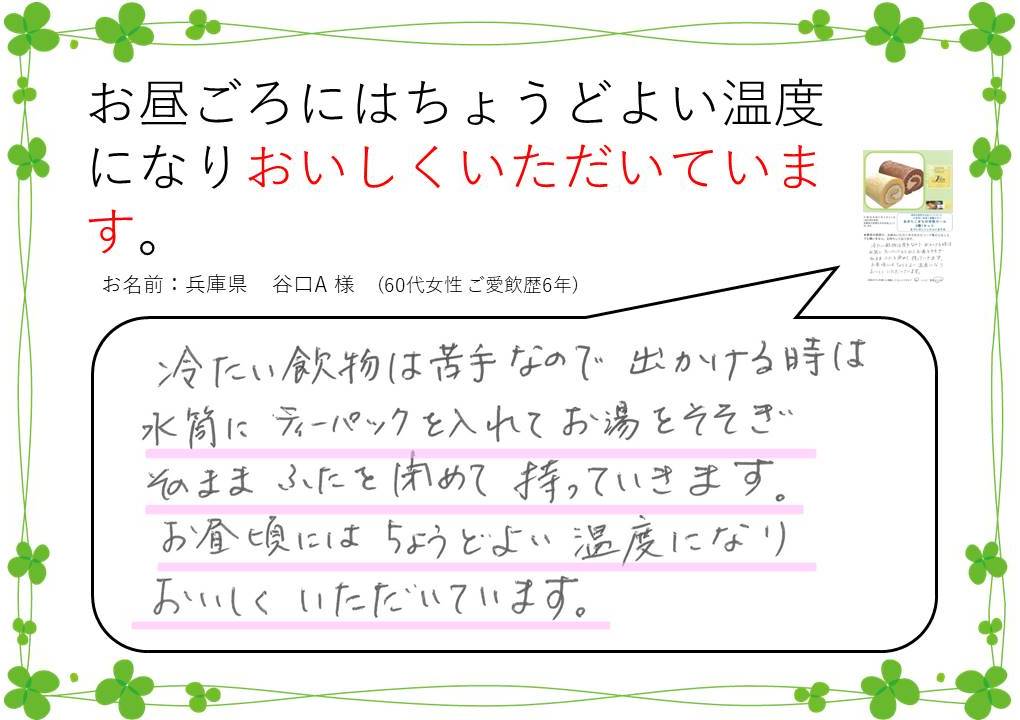 お昼ごろにはちょうどよい温度
になりおいしくいただいていま
す。
お名前：兵庫県　谷口A 様　(60代女性 ご愛飲歴6年)
冷たい飲物は苦手なので 出かける時は
水筒に ティーパックを入れて お湯をそそぎ
そのまま ふたを閉めて 持っていきます。
お昼頃には ちょうどよい 温度になり
おいしく いただいています。